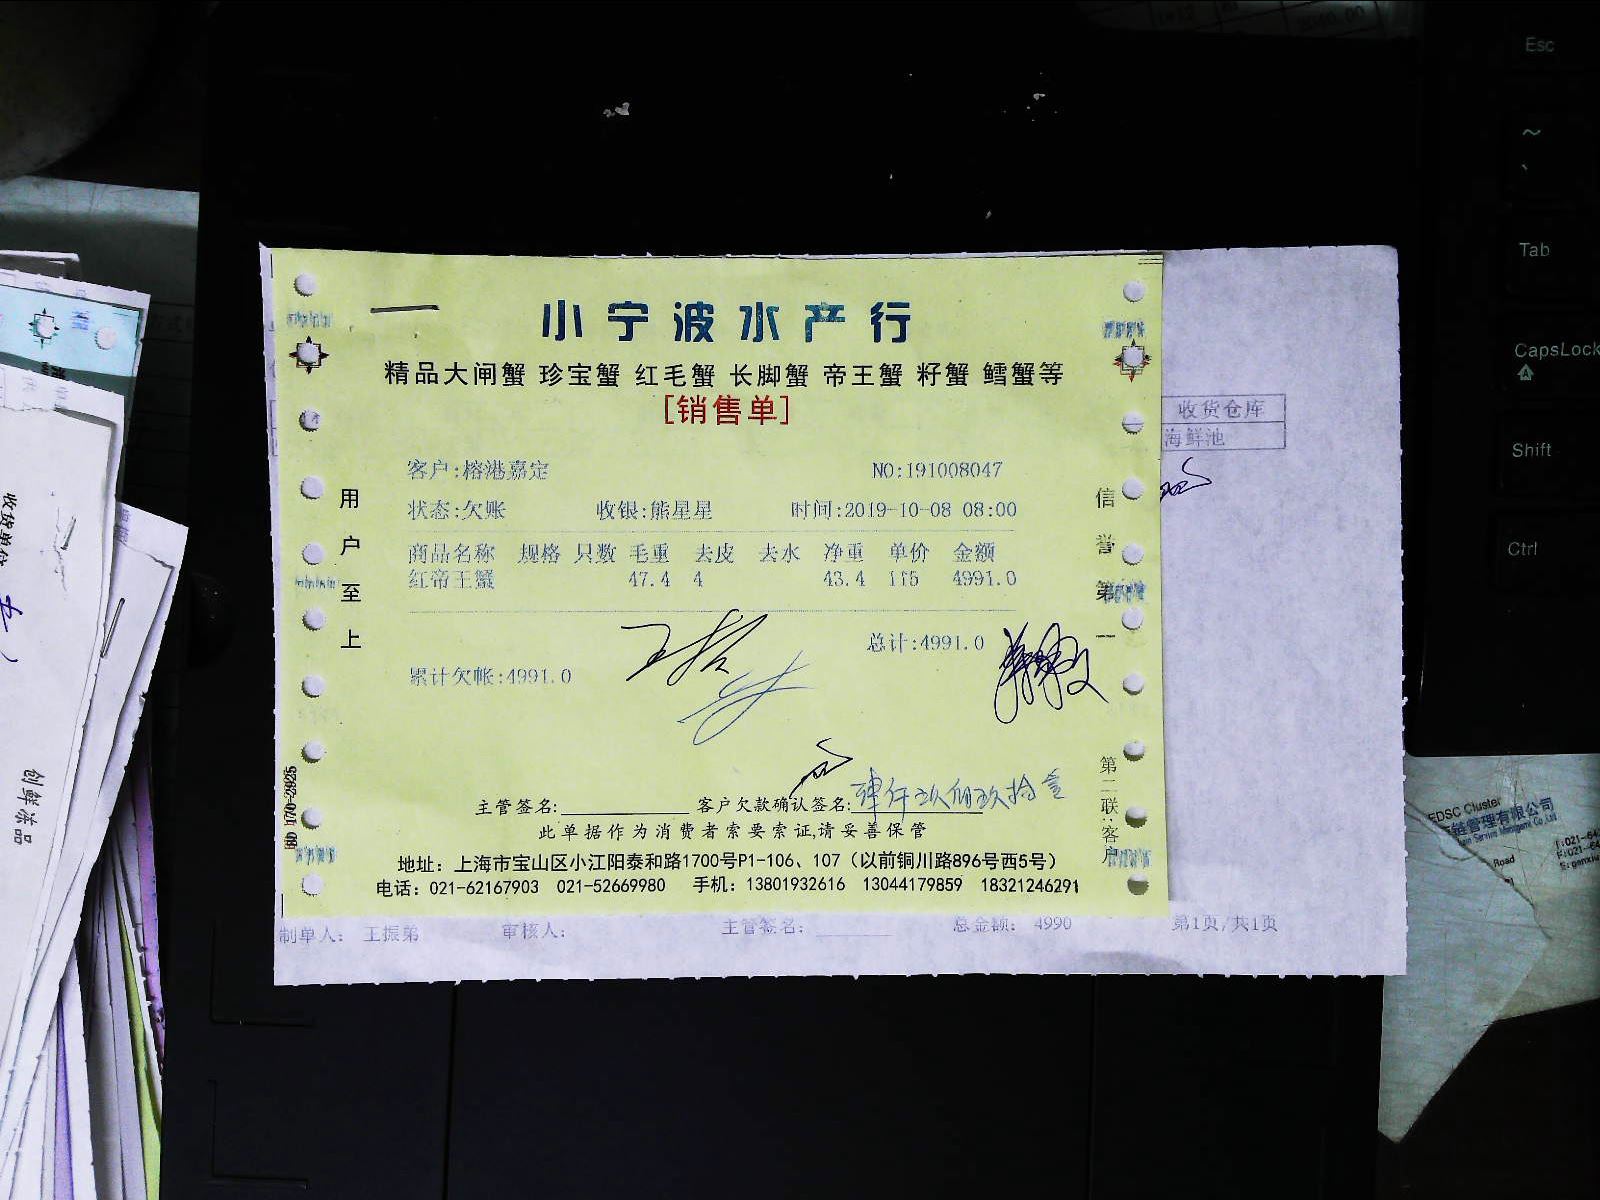 小宁波水产行
精品大闸蟹 珍宝蟹 红毛蟹 长脚蟹 帝王蟹 籽蟹 鳕蟹等
[销售单]
客户:榕港嘉定 NO:191008047
状态:欠账 收银:熊星星 时间:2019-10-08 08:00
商品名称 规格 只数 毛重 去皮 去水 净重 单价 金额
红帝王蟹 47.4 4 43.4 115 4991.0
总计:4991.0
累计欠帐:4991.0
用户至上
信誉第一
第二联:客户
主管签名: 客户欠款确认签名: 肆仟玖佰玖拾壹
此单据作为消费者索要索证,请妥善保管
地址：上海市宝山区小江阳泰和路1700号P1-106、107（以前铜川路896号西5号）
电话：021-62167903 021-52669980 手机：13801932616 13044179859 18321246291
收货仓库
海鲜池
制单人： 王振弟 审核人： 主管签名： 总金额： 4990 第1页/共1页
创鲜冻品
EDSC Cluster
链管理有限公司
Road
Esc
Tab
CapsLock
Shift
Ctrl